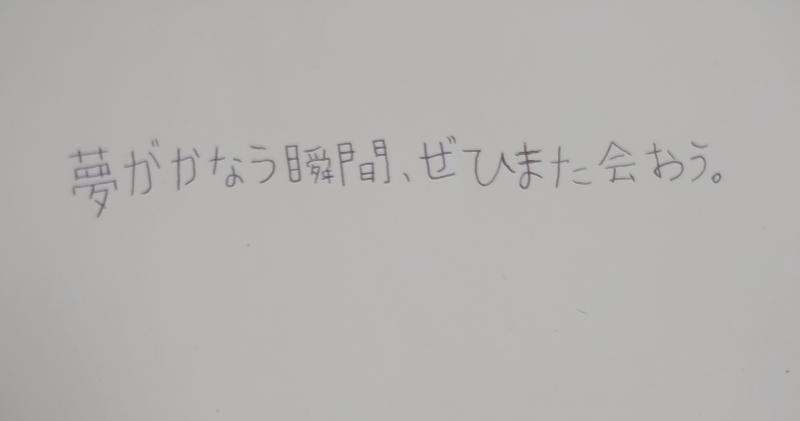 夢がかなう瞬間、ぜひまた会おう。